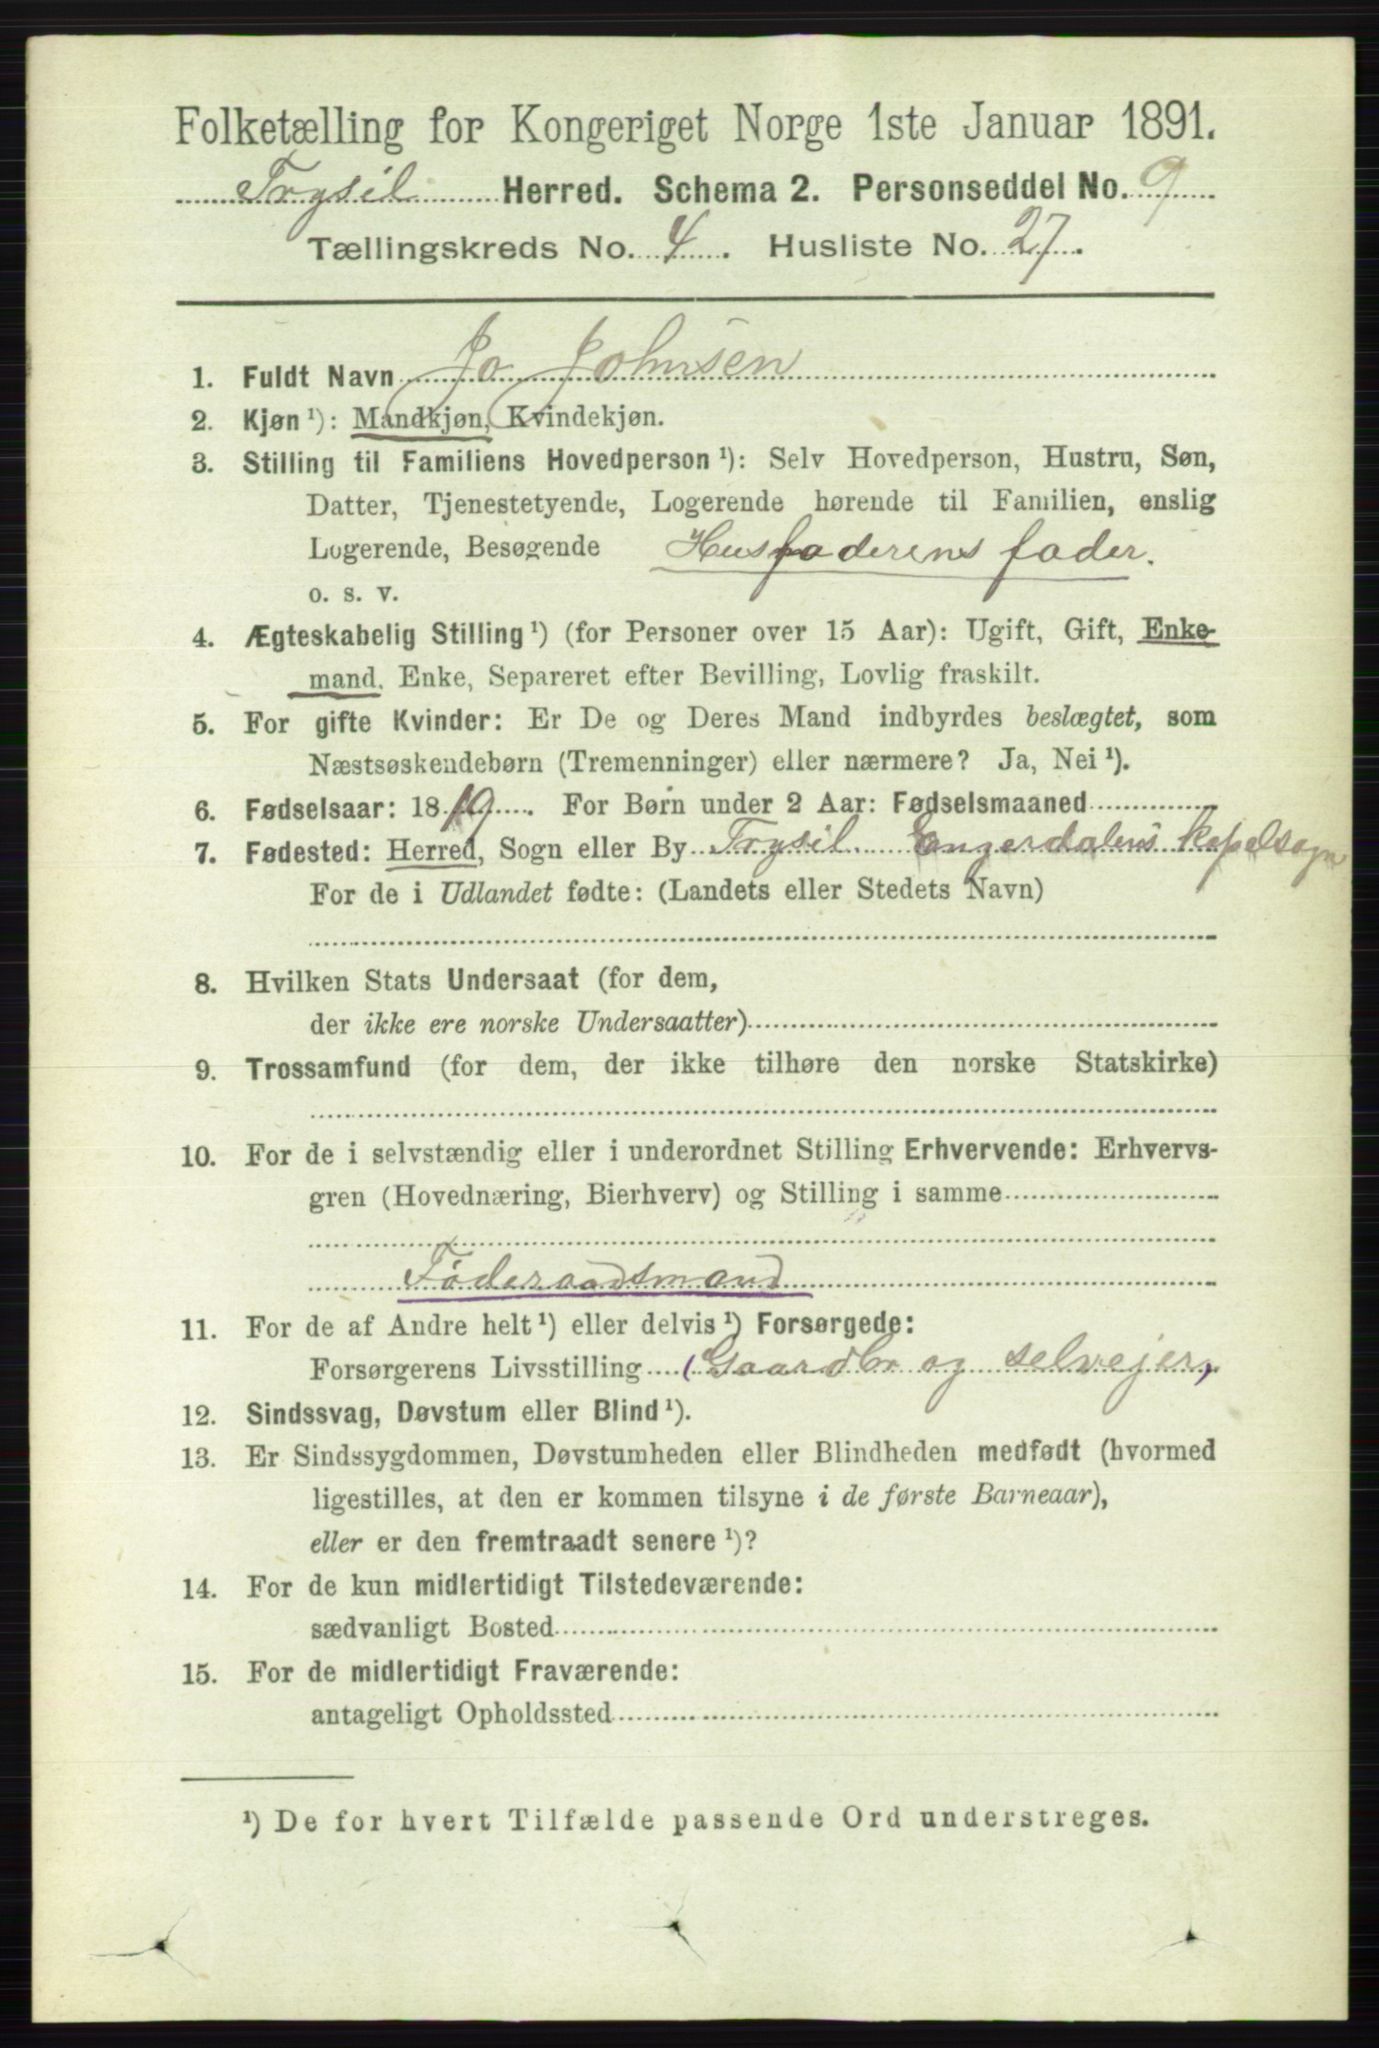 Folketælling for Kongeriget Norge 1ste Januar 1891.
Trysil Herred. Schema 2. Personseddel No. 9
Tællingskreds No. 4. Husliste No. 27.
1. Fuldt Navn Jo Johnsen
2. Kjøn ¹): Mandkjøn, Kvindekjøn.
3. Stilling til Familiens Hovedperson ¹): Selv Hovedperson, Hustru, Søn,
Datter, Tjenestetyende, Logerende hørende til Familien, enslig
Logerende, Besøgende Husfaderens fader.
o. s. v.
4. Ægteskabelig Stilling ¹) (for Personer over 15 Aar): Ugift, Gift, Enke-
mand, Enke, Separeret efter Bevilling, Lovlig fraskilt.
5. For gifte Kvinder: Er De og Deres Mand indbyrdes beslægtet, som
Næstsøskendebørn (Tremenninger) eller nærmere? Ja, Nei ¹).
6. Fødselsaar: 1819. For Børn under 2 Aar: Fødselsmaaned
7. Fødested: Herred, Sogn eller By Trysil Engerdalens Kapelsogn
For de i Udlandet fødte: (Landets eller Stedets Navn)
8. Hvilken Stats Undersaat (for dem,
der ikke ere norske Undersaatter)
9. Trossamfund (for dem, der ikke tilhøre den norske Statskirke)
10. For de i selvstændig eller i underordnet Stilling Erhvervende: Erhvervs-
gren (Hovednæring, Bierhverv) og Stilling i samme
Føderaadsmand
11. For de af Andre helt ¹) eller delvis ¹) Forsørgede:
Forsørgerens Livsstilling (Gaardbr og selvejer)
12. Sindssvag, Døvstum eller Blind ¹).
13. Er Sindssygdommen, Døvstumheden eller Blindheden medfødt (hvormed
ligestilles, at den er kommen tilsyne i de første Barneaar),
eller er den fremtraadt senere ¹)?
14. For de kun midlertidigt Tilstedeværende:
sædvanligt Bosted
15. For de midlertidigt Fraværende:
antageligt Opholdssted
¹) De for hvert Tilfælde passende Ord understreges.